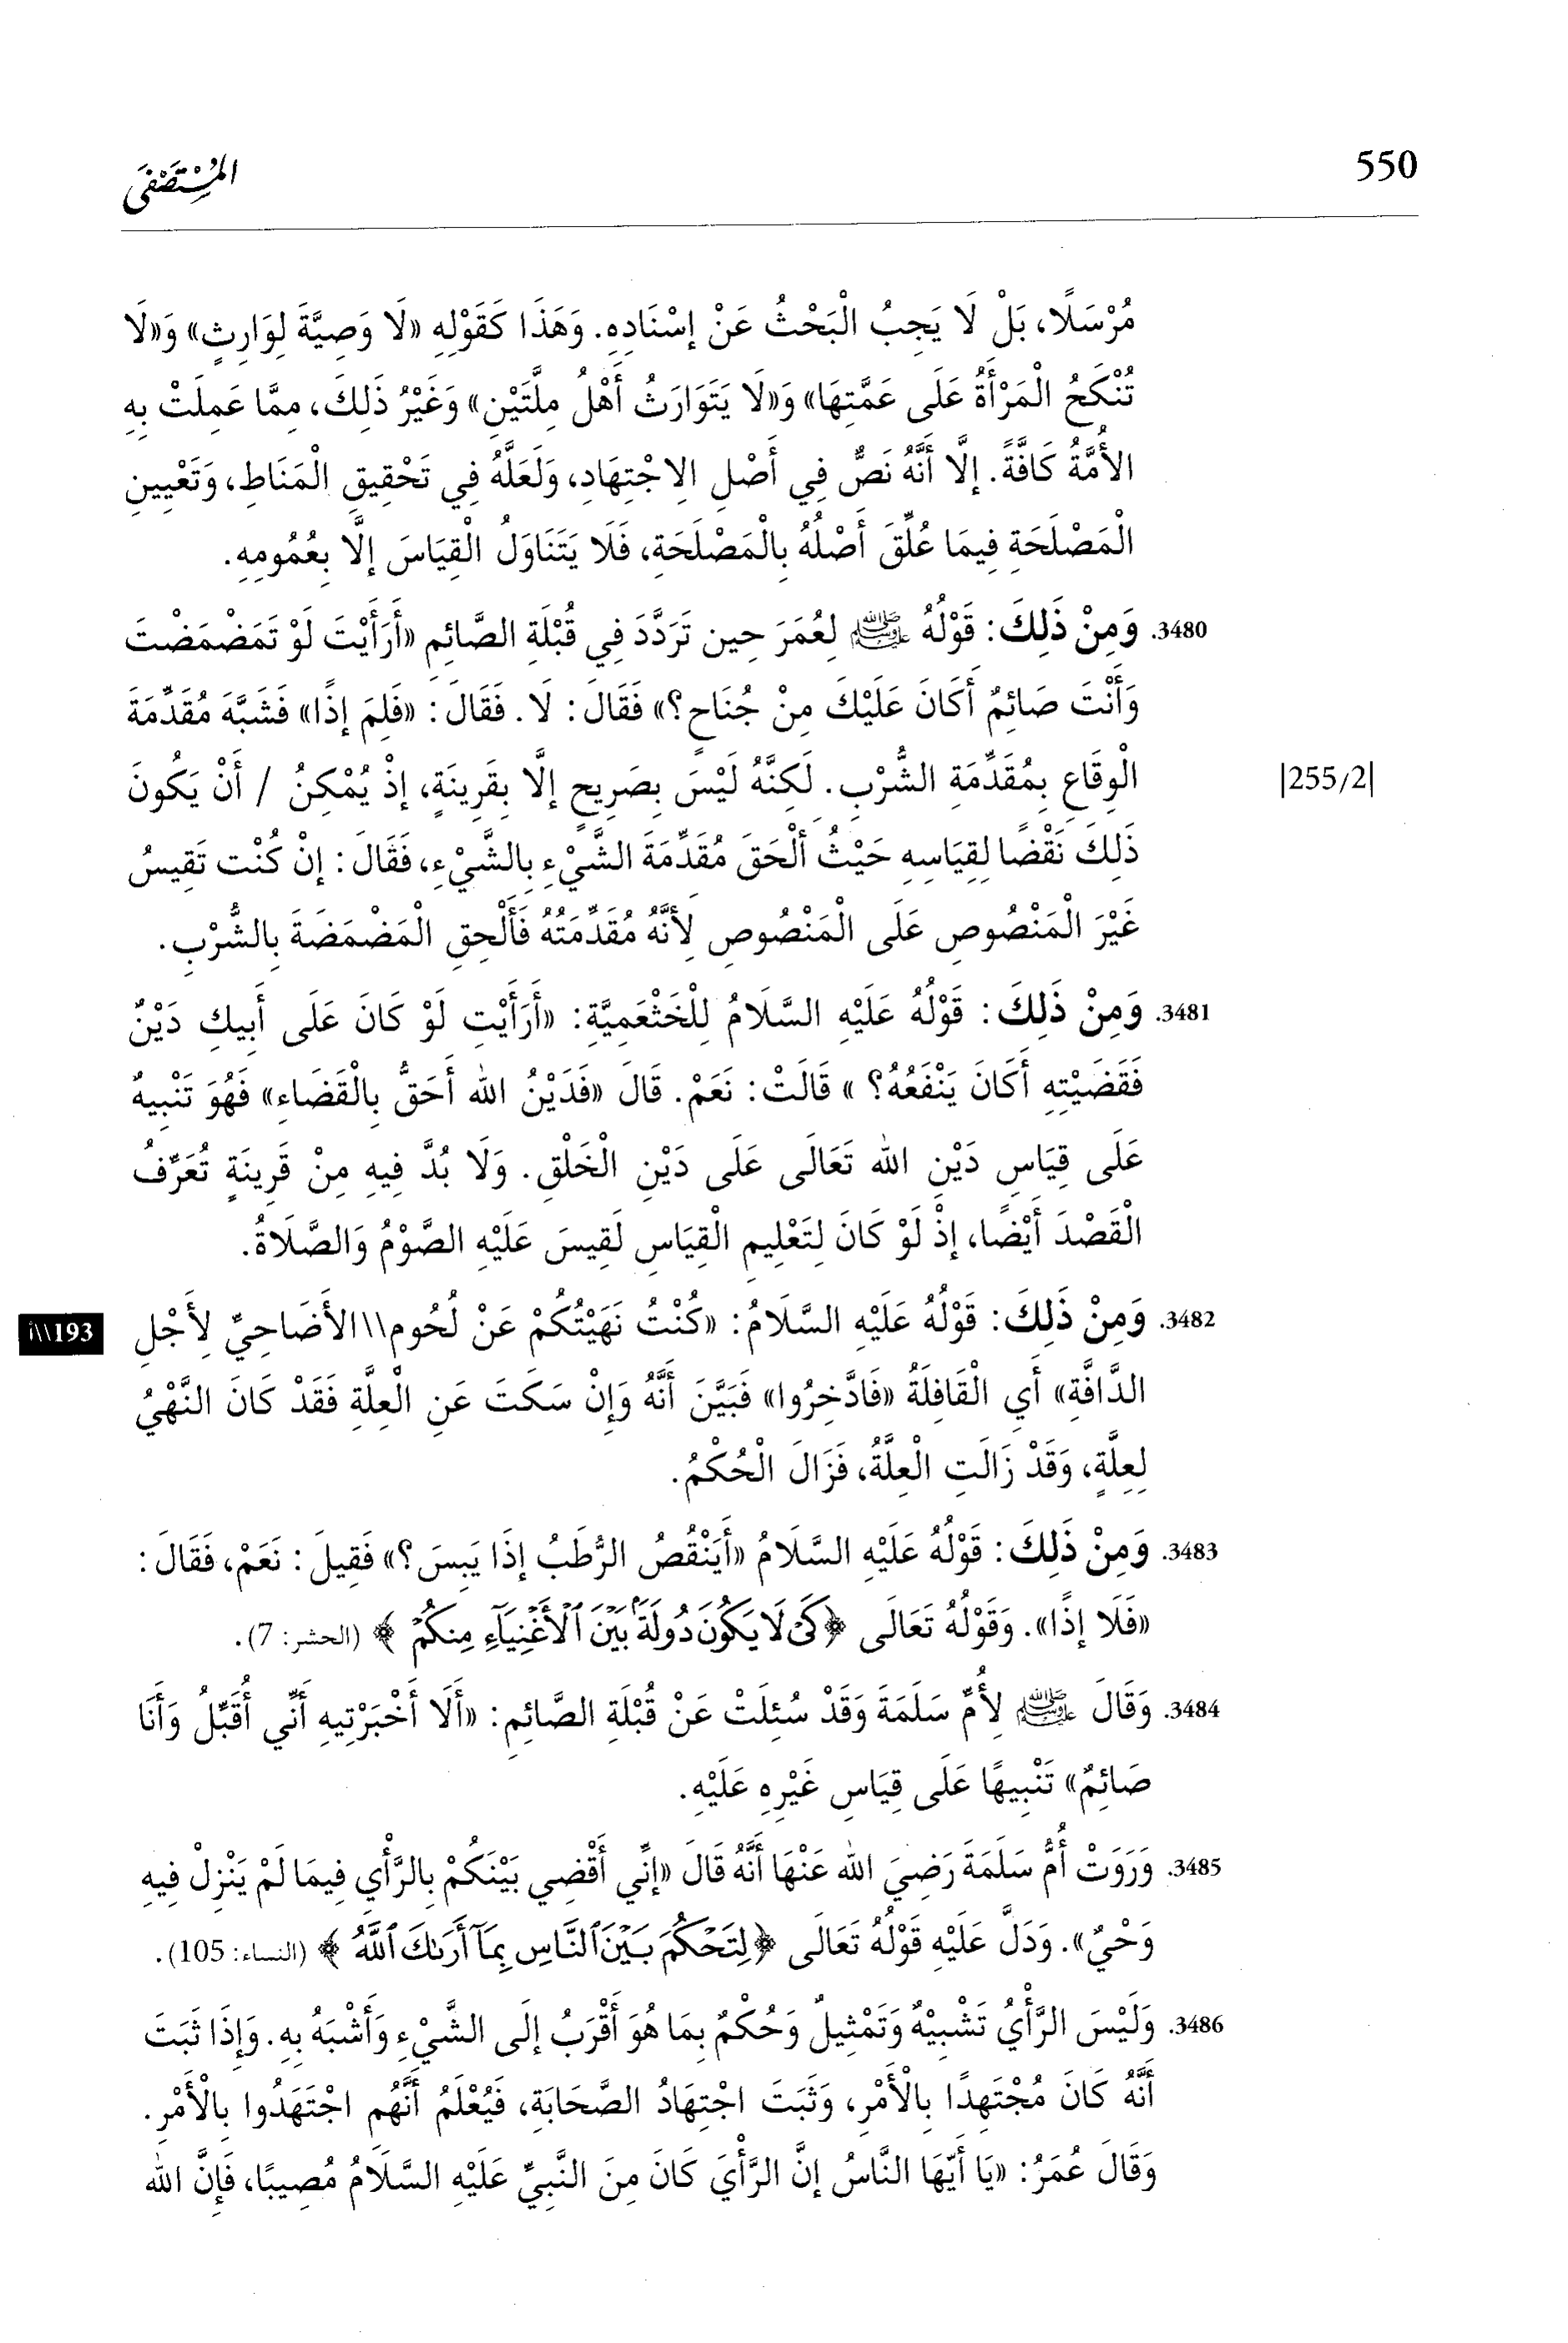 550
المُسْتَصْفَى
مُرْسَلًا، بَلْ لَا يَجِبُ الْبَحْثُ عَنْ إسْنَادِهِ. وَهَذَا كَقَوْلِهِ «لَا وَصِيَّةَ لِوَارِثٍ» وَ«لَا
تُنْكَحُ الْمَرْأَةُ عَلَى عَمَّتِهَا» وَ«لَا يَتَوَارَثُ أَهْلُ مِلَّتَيْنِ» وَغَيْرُ ذَلِكَ، مِمَّا عَمِلَتْ بِهِ
الأُمَّةُ كَافَّةً. إلَّا أَنَّهُ نَصٌّ فِي أَصْلِ الِاجْتِهَادِ، وَلَعَلَّهُ فِي تَحْقِيقِ الْمَنَاطِ، وَتَعْيِينِ
الْمَصْلَحَةِ فِيمَا عُلِّقَ أَصْلُهُ بِالْمَصْلَحَةِ، فَلَا يَتَنَاوَلُ الْقِيَاسَ إلَّا بِعُمُومِهِ.
3480. وَمِنْ ذَلِكَ: قَوْلُهُ ﷺ لِعُمَرَ حِين تَرَدَّدَ فِي قُبْلَةِ الصَّائِمِ «أَرَأَيْتَ لَوْ تَمَضْمَضْتَ
وَأَنْتَ صَائِمٌ أَكَانَ عَلَيْكَ مِنْ جُنَاحٍ؟» فَقَالَ: لَا. فَقَالَ: «فَلِمَ إذًا» فَشَبَّهَ مُقَدِّمَةَ
الْوِقَاعِ بِمُقَدِّمَةِ الشُّرْبِ. لَكِنَّهُ لَيْسَ بِصَرِيحٍ إلَّا بِقَرِينَةٍ، إذْ يُمْكِنُ / أَنْ يَكُونَ
|255/2|
ذَلِكَ نَقْضًا لِقِيَاسِهِ حَيْثُ أَلْحَقَ مُقَدِّمَةَ الشَّيْءِ بِالشَّيْءِ، فَقَالَ: إنْ كُنْت تَقِيسُ
غَيْرَ الْمَنْصُوصِ عَلَى الْمَنْصُوصِ لِأَنَّهُ مُقَدِّمَتُهُ فَأَلْحِقِ الْمَضْمَضَةَ بِالشُّرْبِ.
3481. وَمِنْ ذَلِكَ: قَوْلُهُ عَلَيْهِ السَّلَامُ لِلْخَثْعَمِيَّةِ: «أَرَأَيْتِ لَوْ كَانَ عَلَى أَبِيكِ دَيْنٌ
فَقَضَيْتِهِ أَكَانَ يَنْفَعُهُ؟ » قَالَتْ: نَعَمْ. قَالَ «فَدَيْنُ الله أَحَقُّ بِالْقَضَاءِ» فَهُوَ تَنْبِيهٌ
عَلَى قِيَاسِ دَيْنِ الله تَعَالَى عَلَى دَيْنِ الْخَلْقِ. وَلَا بُدَّ فِيهِ مِنْ قَرِينَةٍ تُعَرِّفُ
الْقَصْدَ أَيْضًا، إذْ لَوْ كَانَ لِتَعْلِيمِ الْقِيَاسِ لَقِيسَ عَلَيْهِ الصَّوْمُ وَالصَّلَاةُ.
3482. وَمِنْ ذَلِكَ: قَوْلُهُ عَلَيْهِ السَّلَامُ: «كُنْتُ نَهَيْتُكُمْ عَنْ لُحُومِ\\الأَضَاحِيِّ لِأَجْلِ
193\\أ
الدَّافَّةِ» أَي الْقَافِلَةُ «فَادَّخِرُوا» فَبَيَّنَ أَنَّهُ وَإِنْ سَكَتَ عَنِ الْعِلَّةِ فَقَدْ كَانَ النَّهْيُ
لِعِلَّةٍ، وَقَدْ زَالَتِ الْعِلَّةُ، فَزَالَ الْحُكْمُ.
3483. وَمِنْ ذَلِكَ: قَوْلُهُ عَلَيْهِ السَّلَامُ «أَيَنْقُصُ الرُّطَبُ إذَا يَبِسَ؟» فَقِيلَ: نَعَمْ، فَقَالَ:
«فَلَا إذًا». وَقَوْلُهُ تَعَالَى ﴿كَىْ لَا يَكُونَ دُولَةًۢ بَيْنَ ٱلْأَغْنِيَآءِ مِنكُمْ﴾ (الحشر: 7).
3484. وَقَالَ ﷺ لِأُمِّ سَلَمَةَ وَقَدْ سُئِلَتْ عَنْ قُبْلَةِ الصَّائِمِ: «أَلَا أَخْبَرْتِيهِ أَنِّي أُقَبِّلُ وَأَنَا
صَائِمٌ» تَنْبِيهًا عَلَى قِيَاسِ غَيْرِهِ عَلَيْهِ.
3485. وَرَوَتْ أُمُّ سَلَمَةَ رَضِيَ الله عَنْهَا أَنَّهُ قَالَ «إنِّي أَقْضِي بَيْنَكُمْ بِالرَّأْيِ فِيمَا لَمْ يَنْزِلْ فِيهِ
وَحْيٌ». وَدَلَّ عَلَيْهِ قَوْلُهُ تَعَالَى ﴿لِتَحْكُمَ بَيْنَ ٱلنَّاسِ بِمَآ أَرَىٰكَ ٱللَّهُ﴾ (النساء: 105).
3486. وَلَيْسَ الرَّأْيُ تَشْبِيْهٌ وَتَمْثِيلٌ وَحُكْمٌ بِمَا هُوَ أَقْرَبُ إلَى الشَّيْءِ وَأَشْبَهُ بِهِ. وَإِذَا ثَبَتَ
أَنَّهُ كَانَ مُجْتَهِدًا بِالْأَمْرِ، وَثَبَتَ اجْتِهَادُ الصَّحَابَةِ، فَيُعْلَمُ أَنَّهُم اجْتَهَدُوا بِالْأَمْرِ.
وَقَالَ عُمَرُ: «يَا أَيّهَا النَّاسُ إنَّ الرَّأْيَ كَانَ مِنَ النَّبِيِّ عَلَيْهِ السَّلَامُ مُصِيبًا، فَإِنَّ الله